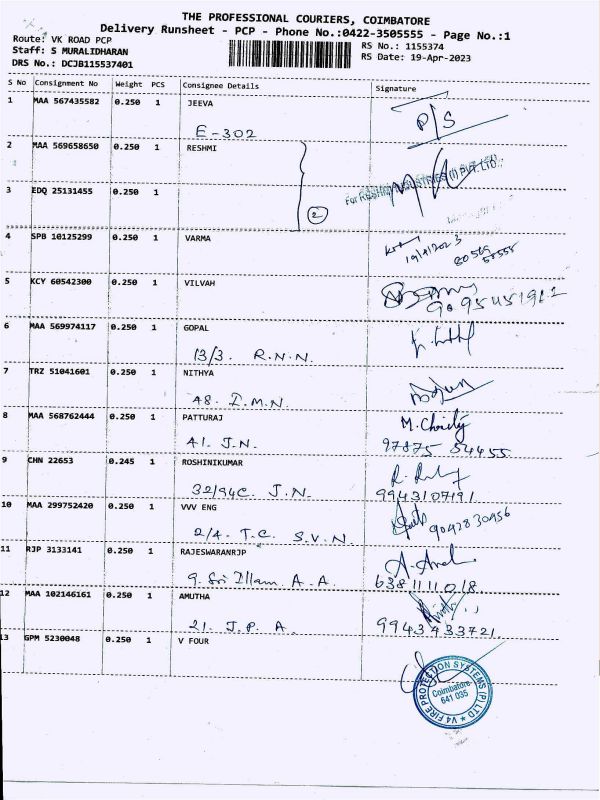 THE PROFESSIONAL COURIERS, COIMBATORE
Delivery Runsheet - PCP - Phone No.:0422-3505555 - Page No.:1
Route: VK ROAD PCP
Staff: S MURALIDHARAN
DRS No.: DCJB115537401
RS No.: 1155374
RS Date: 19-Apr-2023
S No Consignment No Weight PCS Consignee Details Signature
1 MAA 567435582 0.250 1 JEEVA
E-302
P/S
2 MAA 569658650 0.250 1 RESHMI
3 EDQ 25131455 0.250 1
2
4 SPB 10125299 0.250 1 VARMA
19/4/2023
5 KCY 60542300 0.250 1 VILVAH
6 MAA 569974117 0.250 1 GOPAL
13/3. R.N.N.
7 TRZ 51041601 0.250 1 NITHYA
48. I.M.N.
8 MAA 568762444 0.250 1 PATTURAJ
41. J.N.
97875 54455
9 CHN 22653 0.245 1 ROSHINIKUMAR
32/94C. J.N.
9943107191
10 MAA 299752420 0.250 1 VVV ENG
2/4. T.C. S.V.N.
9092830956
11 RJP 3133141 0.250 1 RAJESWARANRJP
9. Sri Illam. A.A.
6381111018
12 MAA 102146161 0.250 1 AMUTHA
21. J.P.A.
9943433721
13 GPM 5230048 0.250 1 V FOUR
V4 FIRE PROTECTION SYSTEMS (P) LTD
Coimbatore-
641 035